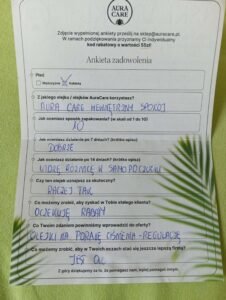 AURA
CARE
Zdjęcie wypełnionej ankiety prześlij na sklep@auracare.pl.
W ramach podziękowania przyznamy Ci indywidualny
kod rabatowy o wartości 50zł!
Ankieta zadowolenia
Płeć
Mężczyzna Kobieta
Z jakiego olejku / olejków AuraCare korzystasz?
AURA CARE WEWNĘTRZNY SPOKÓJ
Jak oceniasz sposób zapakowania? (w skali od 1 do 10)
10
Jak oceniasz działanie po 7 dniach? (krótko opisz)
DOBRZE
Jak oceniasz działanie po 14 dniach? (krótko opisz)
WIDZĘ RÓŻNICE W SAMOPOCZUCIU
Czy ten olejek uznajesz za skuteczny?
RACZEJ TAK
Co możemy zrobić, aby zyskać w Tobie stałego klienta?
OCZEKUJĘ RABATY
Co Twoim zdaniem powinniśmy wprowadzić do oferty?
OLEJKI NA POPRAWĘ CIŚNIENIA - REGULACJĘ
Co możemy zrobić, aby w Twoich oczach stać się jeszcze lepszą firmą?
JEST OK
Z góry dziękujemy za to, że pomagasz nam, lepiej pomagać innym.